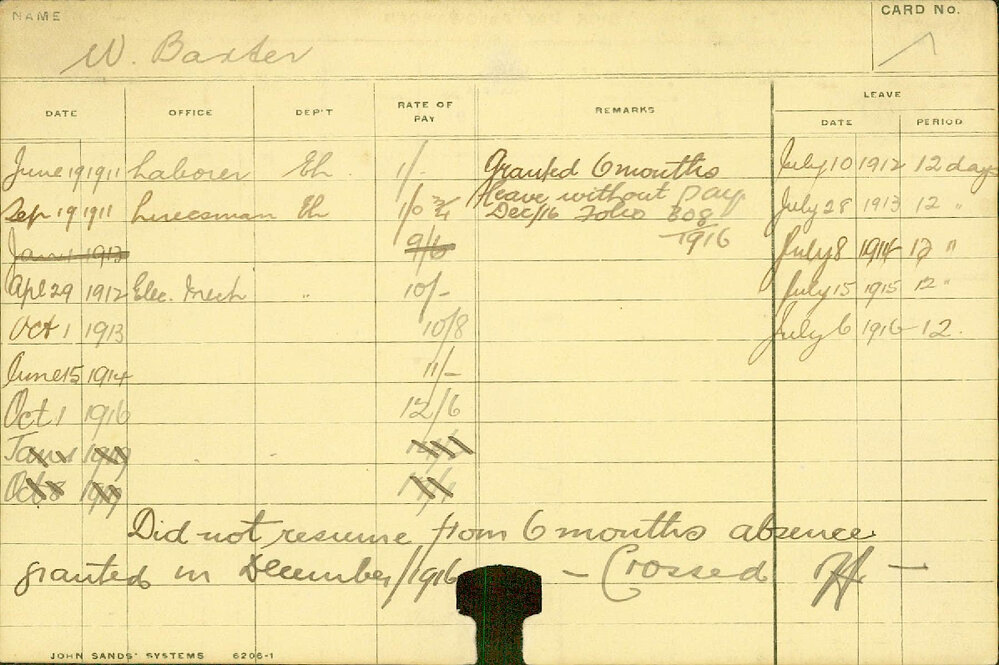 NAME
W. Baxter
CARD No.
DATE OFFICE DEP'T RATE OF PAY REMARKS LEAVE
DATE PERIOD
June 19 1911 Laborer Eh. 1/- Granted 6 months July 10 1912 12 days
leave without pay
Sep 19 1911 Linesman Eh 1/0 3/4 Dec/16 Folio 308 July 28 1913 12 "
Jan 1 1913 9/6 1916 July 8 1914 12 "
Apl 29 1912 Elec. Mech " 10/- July 15 1915 12 "
Oct 1 1913 10/8 July 6 1916 12.
June 15 1914 11/-
Oct 1 1916 12/6
Jan 1
Oct 8
Did not resume from 6 months absence
granted in December/1916 - Crossed Off -
JOHN SANDS' SYSTEMS 6206-1